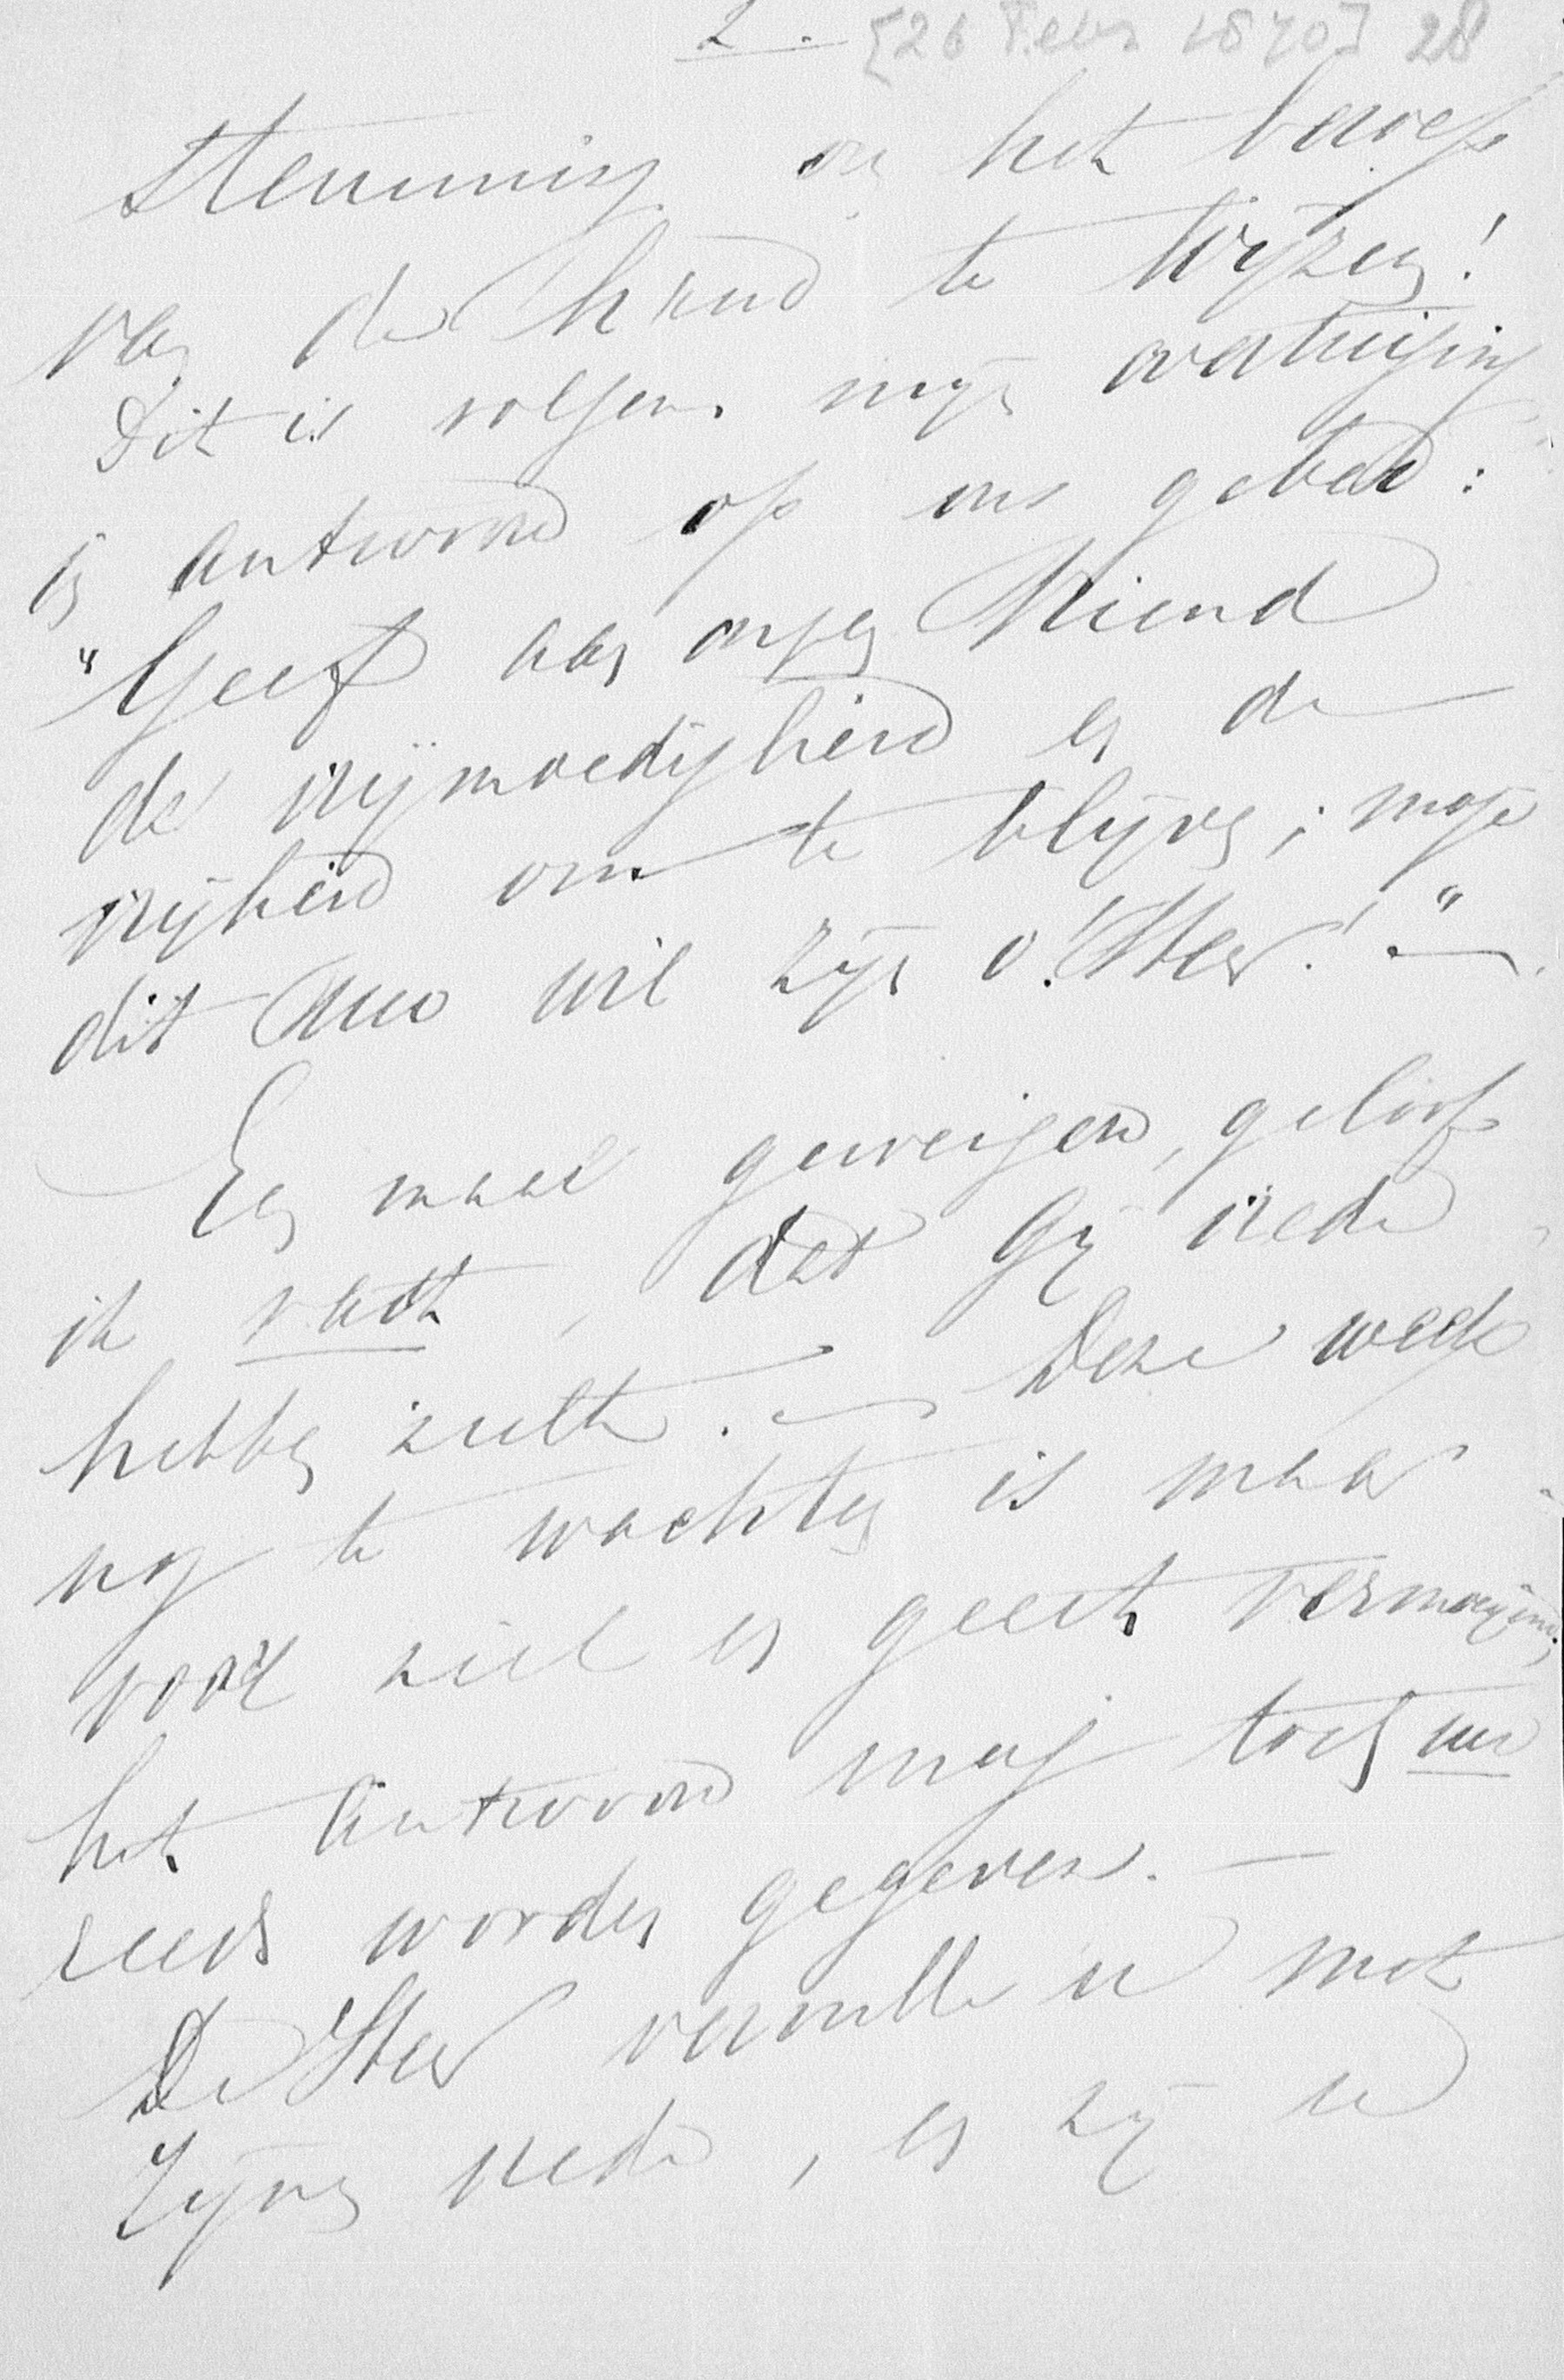 2. [26 Febr 1870] 28
stemming om het beroep
van de hand te wijzen!
Dit is volgens mijn overtuiging
in antwoord op ons gebed:
"Geef aan onzen Vriend
de vrijmoedigheid en de
vrijheid om te blijven; moge
dit Uwe wil zijn o! Heer!"—
Een maal geweigerd, geloof
ik vast, dat gij vrede
hebben zult. — Deze week
nog te wachten is maar
voor ziel en geest vermoeijend,
het antwoord mag toch nu
reeds worden gegeven. —
De Heer vervulle u met
Zijnen vrede, en zij u